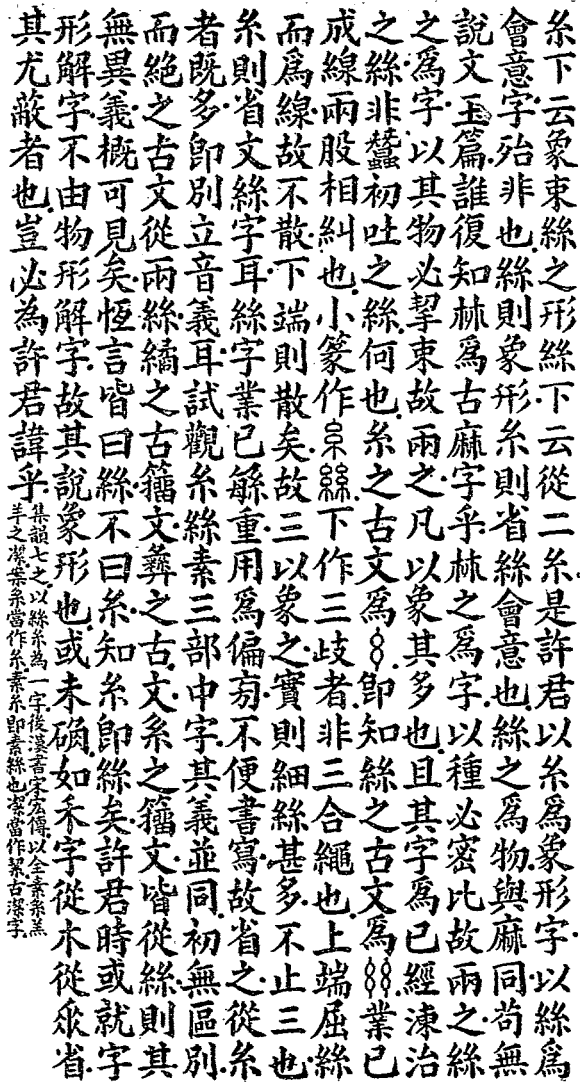 糸下云象束絲之形絲下云從二糸是許君以糸爲象形字以絲爲
會意字殆非也絲則象形糸則省絲會意也絲之爲物與麻同苟無
說文玉篇誰復知𣏟爲古麻字乎𣏟之爲字以種必密比故兩之絲
之爲字以其物必挈束故兩之凡以象其多也且其字爲已經湅治
之絲非蠶初吐之絲何也糸之古文爲卽知絲之古文爲業已
成線兩股相糾也小篆作糸絲下作三歧者非三合繩也上端屈絲
而爲線故不散下端則散矣故三以象之實則細絲甚多不止三也
糸則省文絲字耳絲字業已緐重用爲偏㫄不便書寫故省之從糸
者既多卽別立音義耳試觀糸絲素三部中字其義並同初無區別
而絕之古文從兩絲繘之古籒文彝之古文系之籒文皆從絲則其
無異義概可見矣恆言皆曰絲不曰糸知糸卽絲矣許君時或就字
形解字不由物形解字故其說象形也或未确如禾字從木從𠂹省
其尤蔽者也豈必為許君諱乎
集韻七之以絲糸為一字後漢書宋宏傳以全素糸羔
羊之潔案糸當作糸素糸即素絲也潔當作絜古潔字